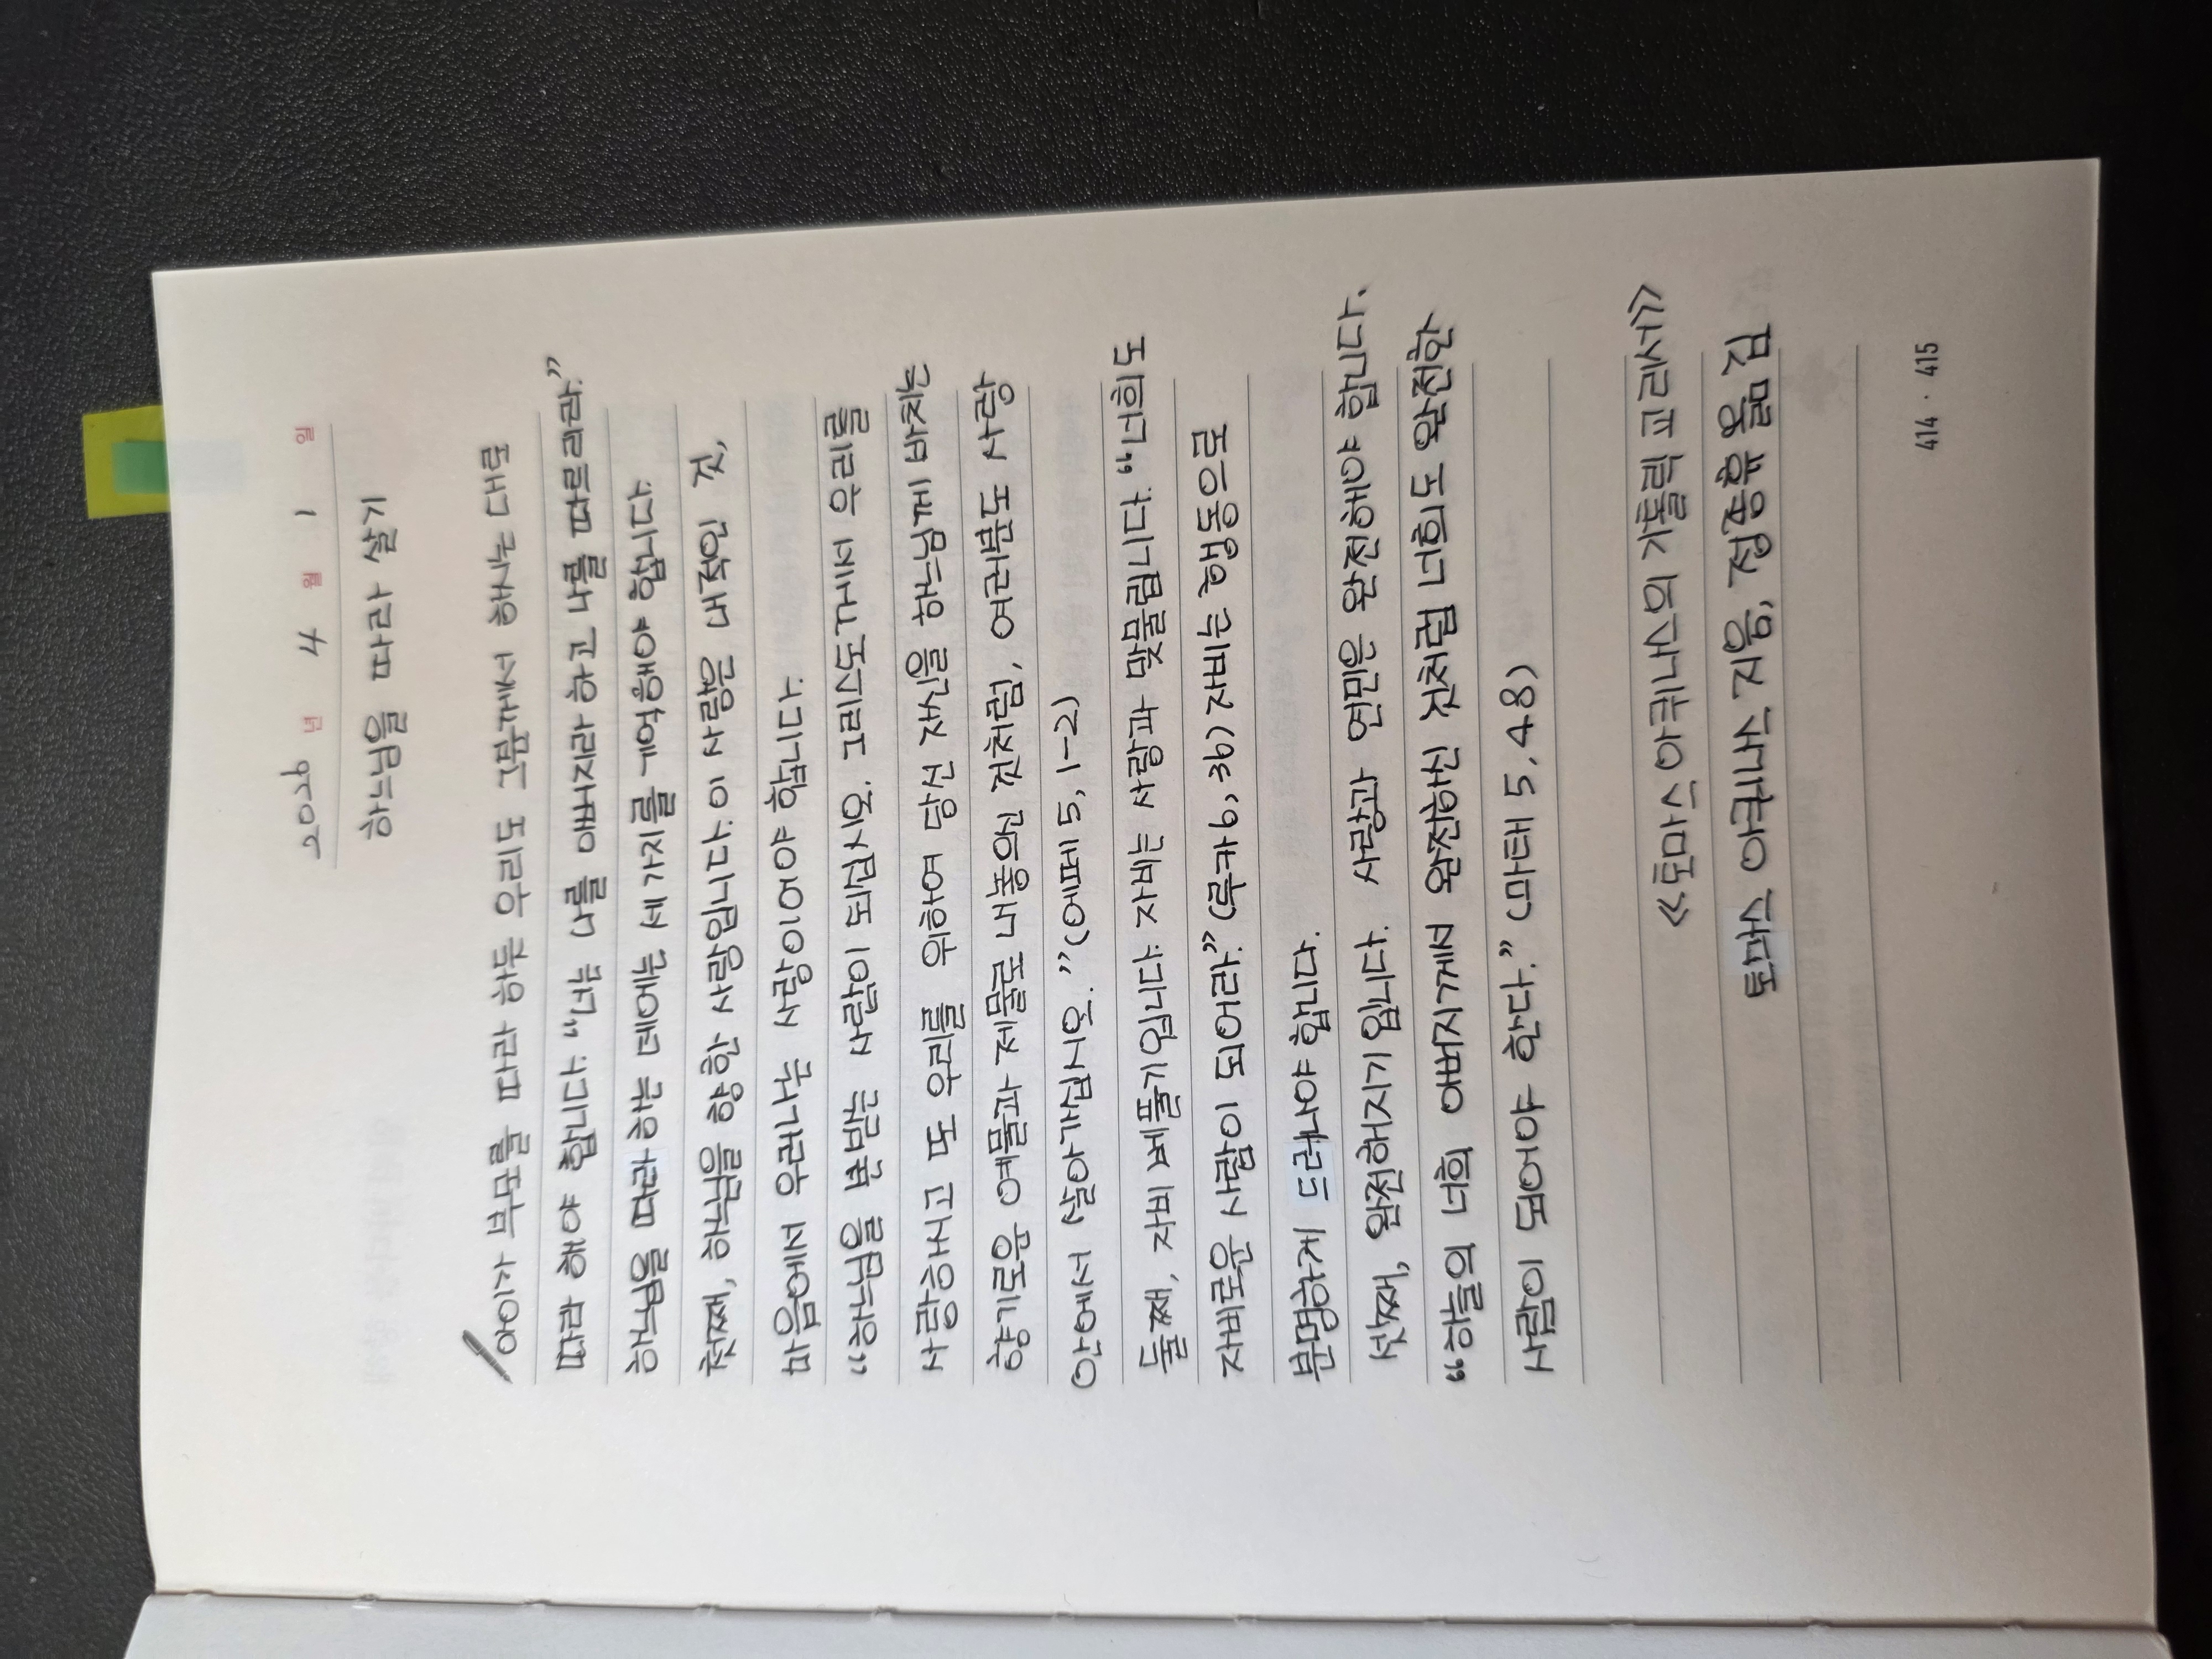 2026 년 4 월 1 일
하느님을 따라 살기
아이가 부모를 따라 하듯 우리도 그분께서 하시는 대로
따라 해야 합니다. "너는 나를 아버지라 하고 나를 따르리라."
하느님을 따라 하는 데에는 세 가지를 기억해야 합니다.
첫째, 하느님을 향한 사랑입니다. 이 사랑은 내적인 것,
마음에서 우러나는 사랑이어야 합니다.
"하느님을 본받는 사람이 되십시오. 그리스도께서 우리를
사랑하시고 또 우리를 위하여 당신 자신을 하느님께 바치는
향기로운 예물과 제물로 내놓으신 것처럼, 여러분도 사랑
안에서 살아가십시오." (에페 5, 1-2)
둘째, 자비 베풀기입니다. 자비는 사랑과 맞물립니다. "너희도
자비로운 사람이 되어라." (루카 6, 36) 자비는 행동으로
분명하게 드러나야 합니다.
셋째, 완전해지기 입니다. 사랑과 연민은 완전해야 합니다.
"하늘의 너희 아버지께서 완전하신 것처럼 너희도 완전한
사람이 되어야 한다." (마태 5, 48)
《토마스 아퀴나스의 가톨릭 교리서》
토마스 아퀴나스 지음, 정종휴 옮김
414 · 415